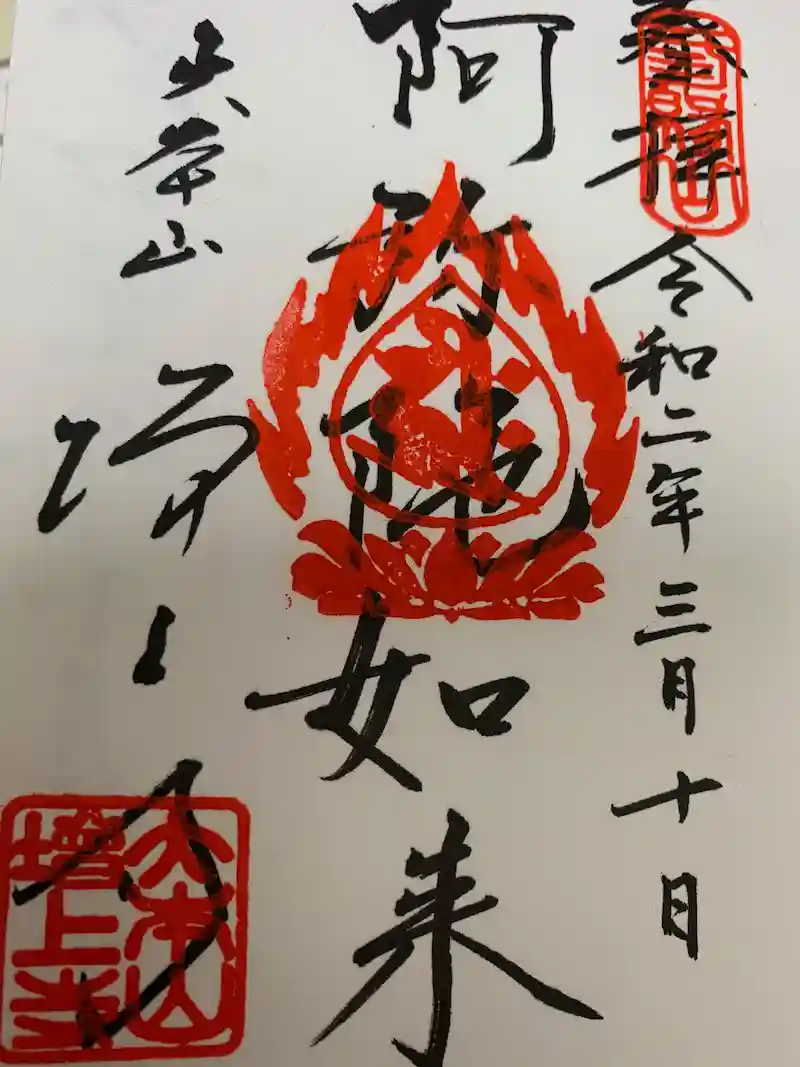 奉拝
令和二年三月十日
阿弥陀如来
大本山
増上寺
大本山
增上寺